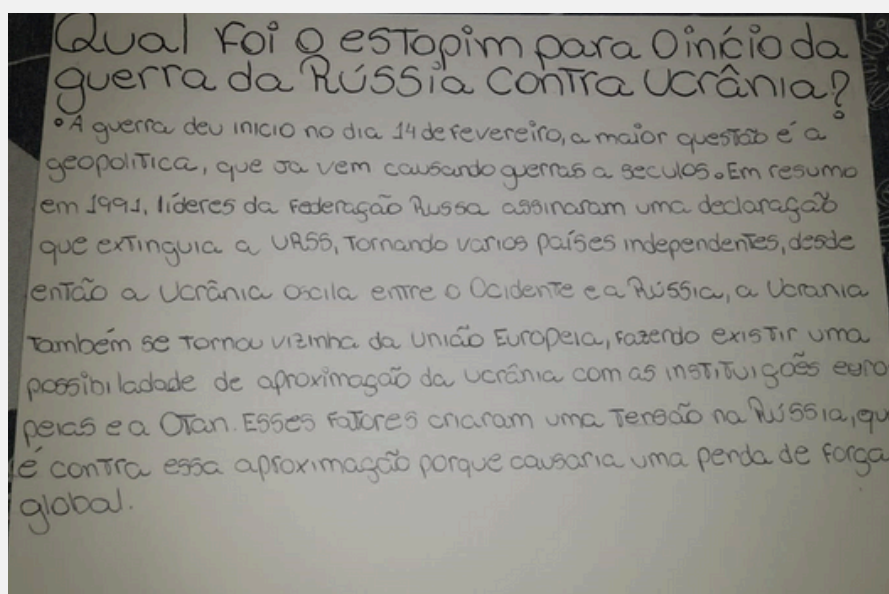 Qual Foi o estopim para o início da
guerra da Rússia contra Ucrânia?
• A guerra deu inicio no dia 14 de fevereiro, a maior questão é a
geopolitica, que ja vem causando guerras a seculos. Em resumo
em 1991, líderes da Federação Russa assinaram uma declaração
que extinguia a URSS, tornando varios países independentes, desde
então a Ucrânia oscila entre o Ocidente e a Rússia, a Ucrania
também se tornou vizinha da União Europeia, fazendo existir uma
possibiladade de aproximação da ucrânia com as instituições euro
peias e a Otan. Esses fatores criaram uma tensão na Rússia, qu
é contra essa aproximação porque causaria uma perda de força
global.